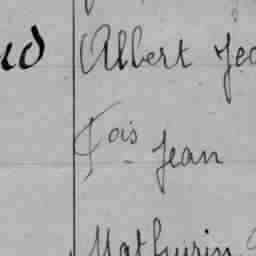 Albert
Fois Jean
Mathurin